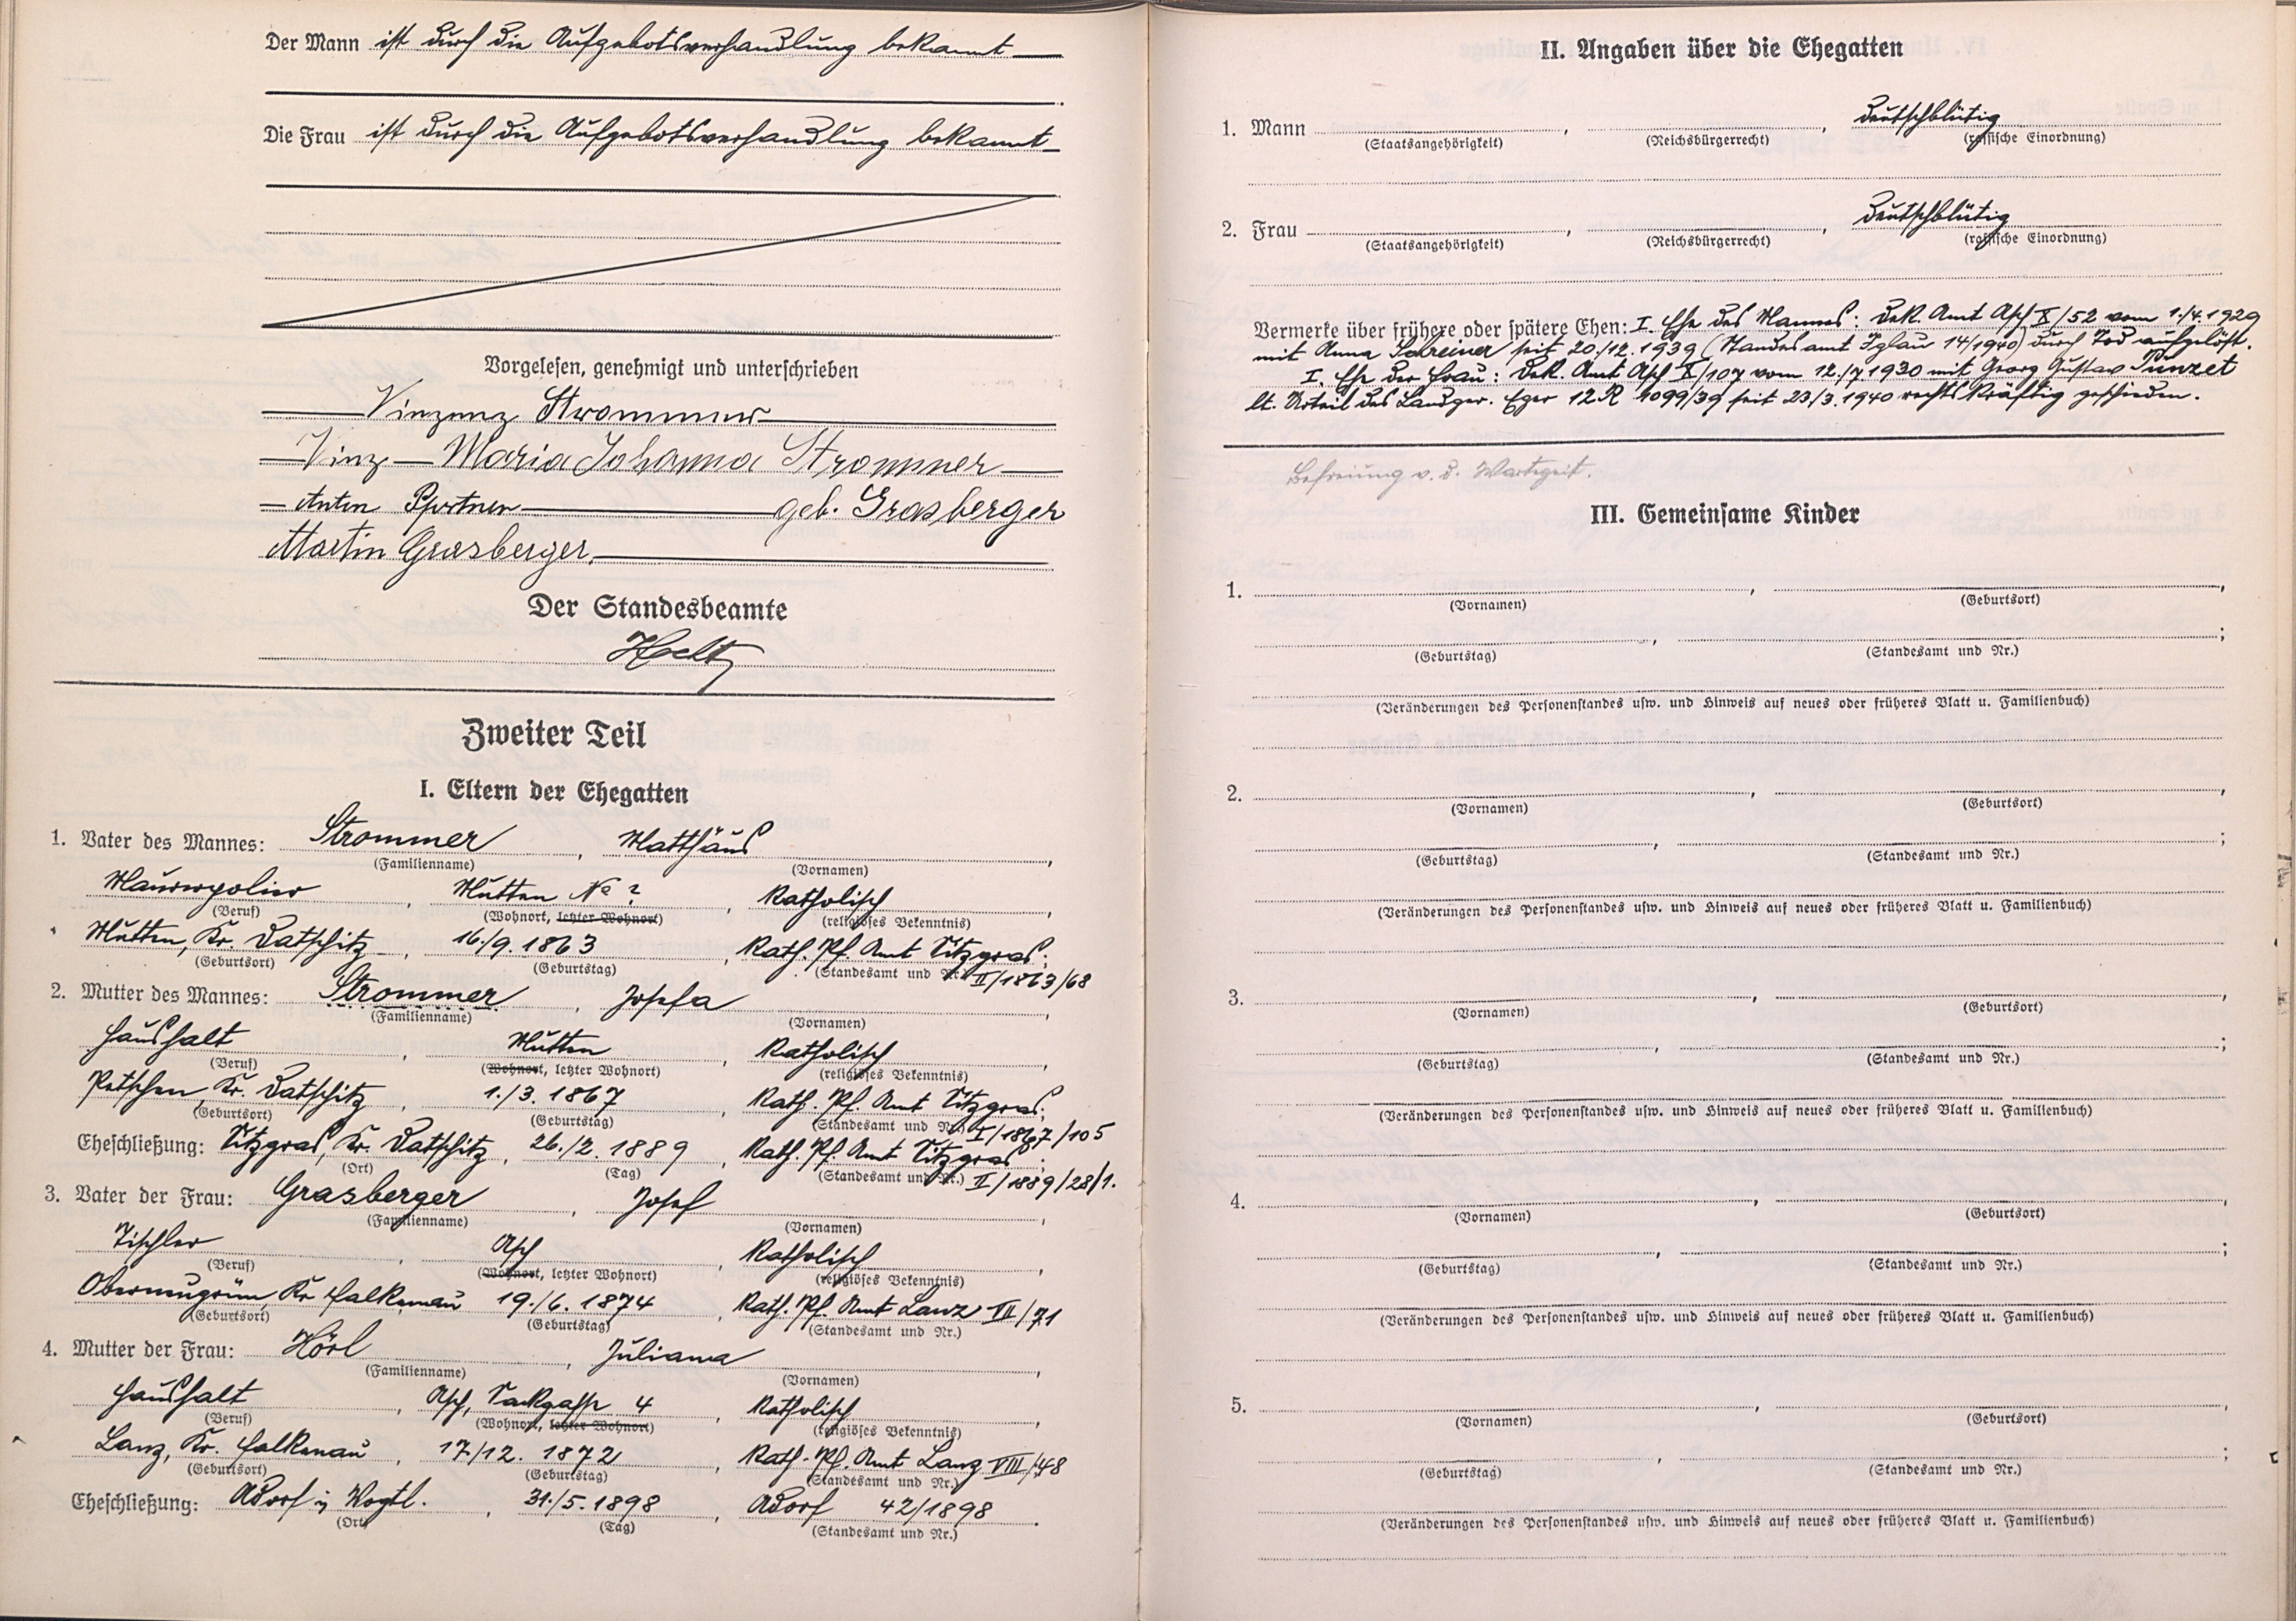 Der Mann ist durch die Aufgebotsverhandlung bekannt
Die Frau ist durch die Aufgebotsverhandlung bekannt
Vorgelesen, genehmigt und unterschrieben
Vinzenz Strommer
Vinz Maria Johanna Strommer
Anton Pfortner geb. Grasberger
Martin Grasberger.
Der Standesbeamte
Zweiter Teil
I. Eltern der Ehegatten
1. Vater des Mannes: Strommer, Matthäus,
(Familienname) (Vornamen)
Maurerpolier, Mutten No ?, Katholisch,
(Beruf) (Wohnort, letzter Wohnort) (religiöses Bekenntnis)
Mutten, Kr. Datschitz, 16./9. 1863, Kath. Pf. Amt Sitzgras;
(Geburtsort) (Geburtstag) (Standesamt und Nr.) II/1863/68
2. Mutter des Mannes: Strommer, Josefa,
(Familienname) (Vornamen)
Haushalt, Mutten, Katholisch,
(Beruf) (Wohnort, letzter Wohnort) (religiöses Bekenntnis)
Petschen, Kr. Datschitz, 1./3. 1867, Kath. Pf. Amt Sitzgras;
(Geburtsort) (Geburtstag) (Standesamt und Nr.) I/1867/105
Eheschließung: Sitzgras, Kr. Datschitz, 26./2. 1889, Kath. Pf. Amt Sitzgras;
(Ort) (Tag) (Standesamt und Nr.) II/1889/28/1.
3. Vater der Frau: Grasberger, Josef,
(Familienname) (Vornamen)
Tischler, Asch, Katholisch,
(Beruf) (Wohnort, letzter Wohnort) (religiöses Bekenntnis)
Oberneugrün, Kr. Falkenau 19./6. 1874, Kath. Pf. Amt Lanz VII/71
(Geburtsort) (Geburtstag) (Standesamt und Nr.)
4. Mutter der Frau: Hörl, Juliana,
(Familienname) (Vornamen)
Haushalt, Asch, 4, Katholisch,
(Beruf) (Wohnort, letzter Wohnort) (religiöses Bekenntnis)
Lanz, Kr. Falkenau, 17./12. 1872, Kath. Pf. Amt Lanz VIII/48
(Geburtsort) (Geburtstag) (Standesamt und Nr.)
Eheschließung: Adorf i. Vogtl., 31./5. 1898, Adorf 42/1898.
(Ort) (Tag) (Standesamt und Nr.)
II. Angaben über die Ehegatten
1. Mann , , deutschblütig
(Staatsangehörigkeit) (Reichsbürgerrecht) (rassische Einordnung)
2. Frau , , deutschblütig
(Staatsangehörigkeit) (Reichsbürgerrecht) (rassische Einordnung)
Vermerke über frühere oder spätere Ehen: I. Ehe des Mannes: Dek. Amt Asch X/52 vom 1./4. 1929
mit Anna Schreiner seit 20./12. 1939 (Standesamt Iglau 14/1940) durch Tod aufgelöst.
I. Ehe der Frau: Dek. Amt Asch X/107 vom 12./7. 1930 mit Georg Gustav Punzet
lt. Urteil des Landger. Eger 12 R 1099/39 seit 23/3. 1940 rechtskräftig geschieden.
Befreiung v. d. Wartezeit.
III. Gemeinsame Kinder
1. , ,
(Vornamen) (Geburtsort)
, ;
(Geburtstag) (Standesamt und Nr.)
(Veränderungen des Personenstandes usw. und Hinweis auf neues oder früheres Blatt u. Familienbuch)
2. , ,
(Vornamen) (Geburtsort)
, ;
(Geburtstag) (Standesamt und Nr.)
(Veränderungen des Personenstandes usw. und Hinweis auf neues oder früheres Blatt u. Familienbuch)
3. , ,
(Vornamen) (Geburtsort)
, ;
(Geburtstag) (Standesamt und Nr.)
(Veränderungen des Personenstandes usw. und Hinweis auf neues oder früheres Blatt u. Familienbuch)
4. , ,
(Vornamen) (Geburtsort)
, ;
(Geburtstag) (Standesamt und Nr.)
(Veränderungen des Personenstandes usw. und Hinweis auf neues oder früheres Blatt u. Familienbuch)
5. , ,
(Vornamen) (Geburtsort)
, ;
(Geburtstag) (Standesamt und Nr.)
(Veränderungen des Personenstandes usw. und Hinweis auf neues oder früheres Blatt u. Familienbuch)